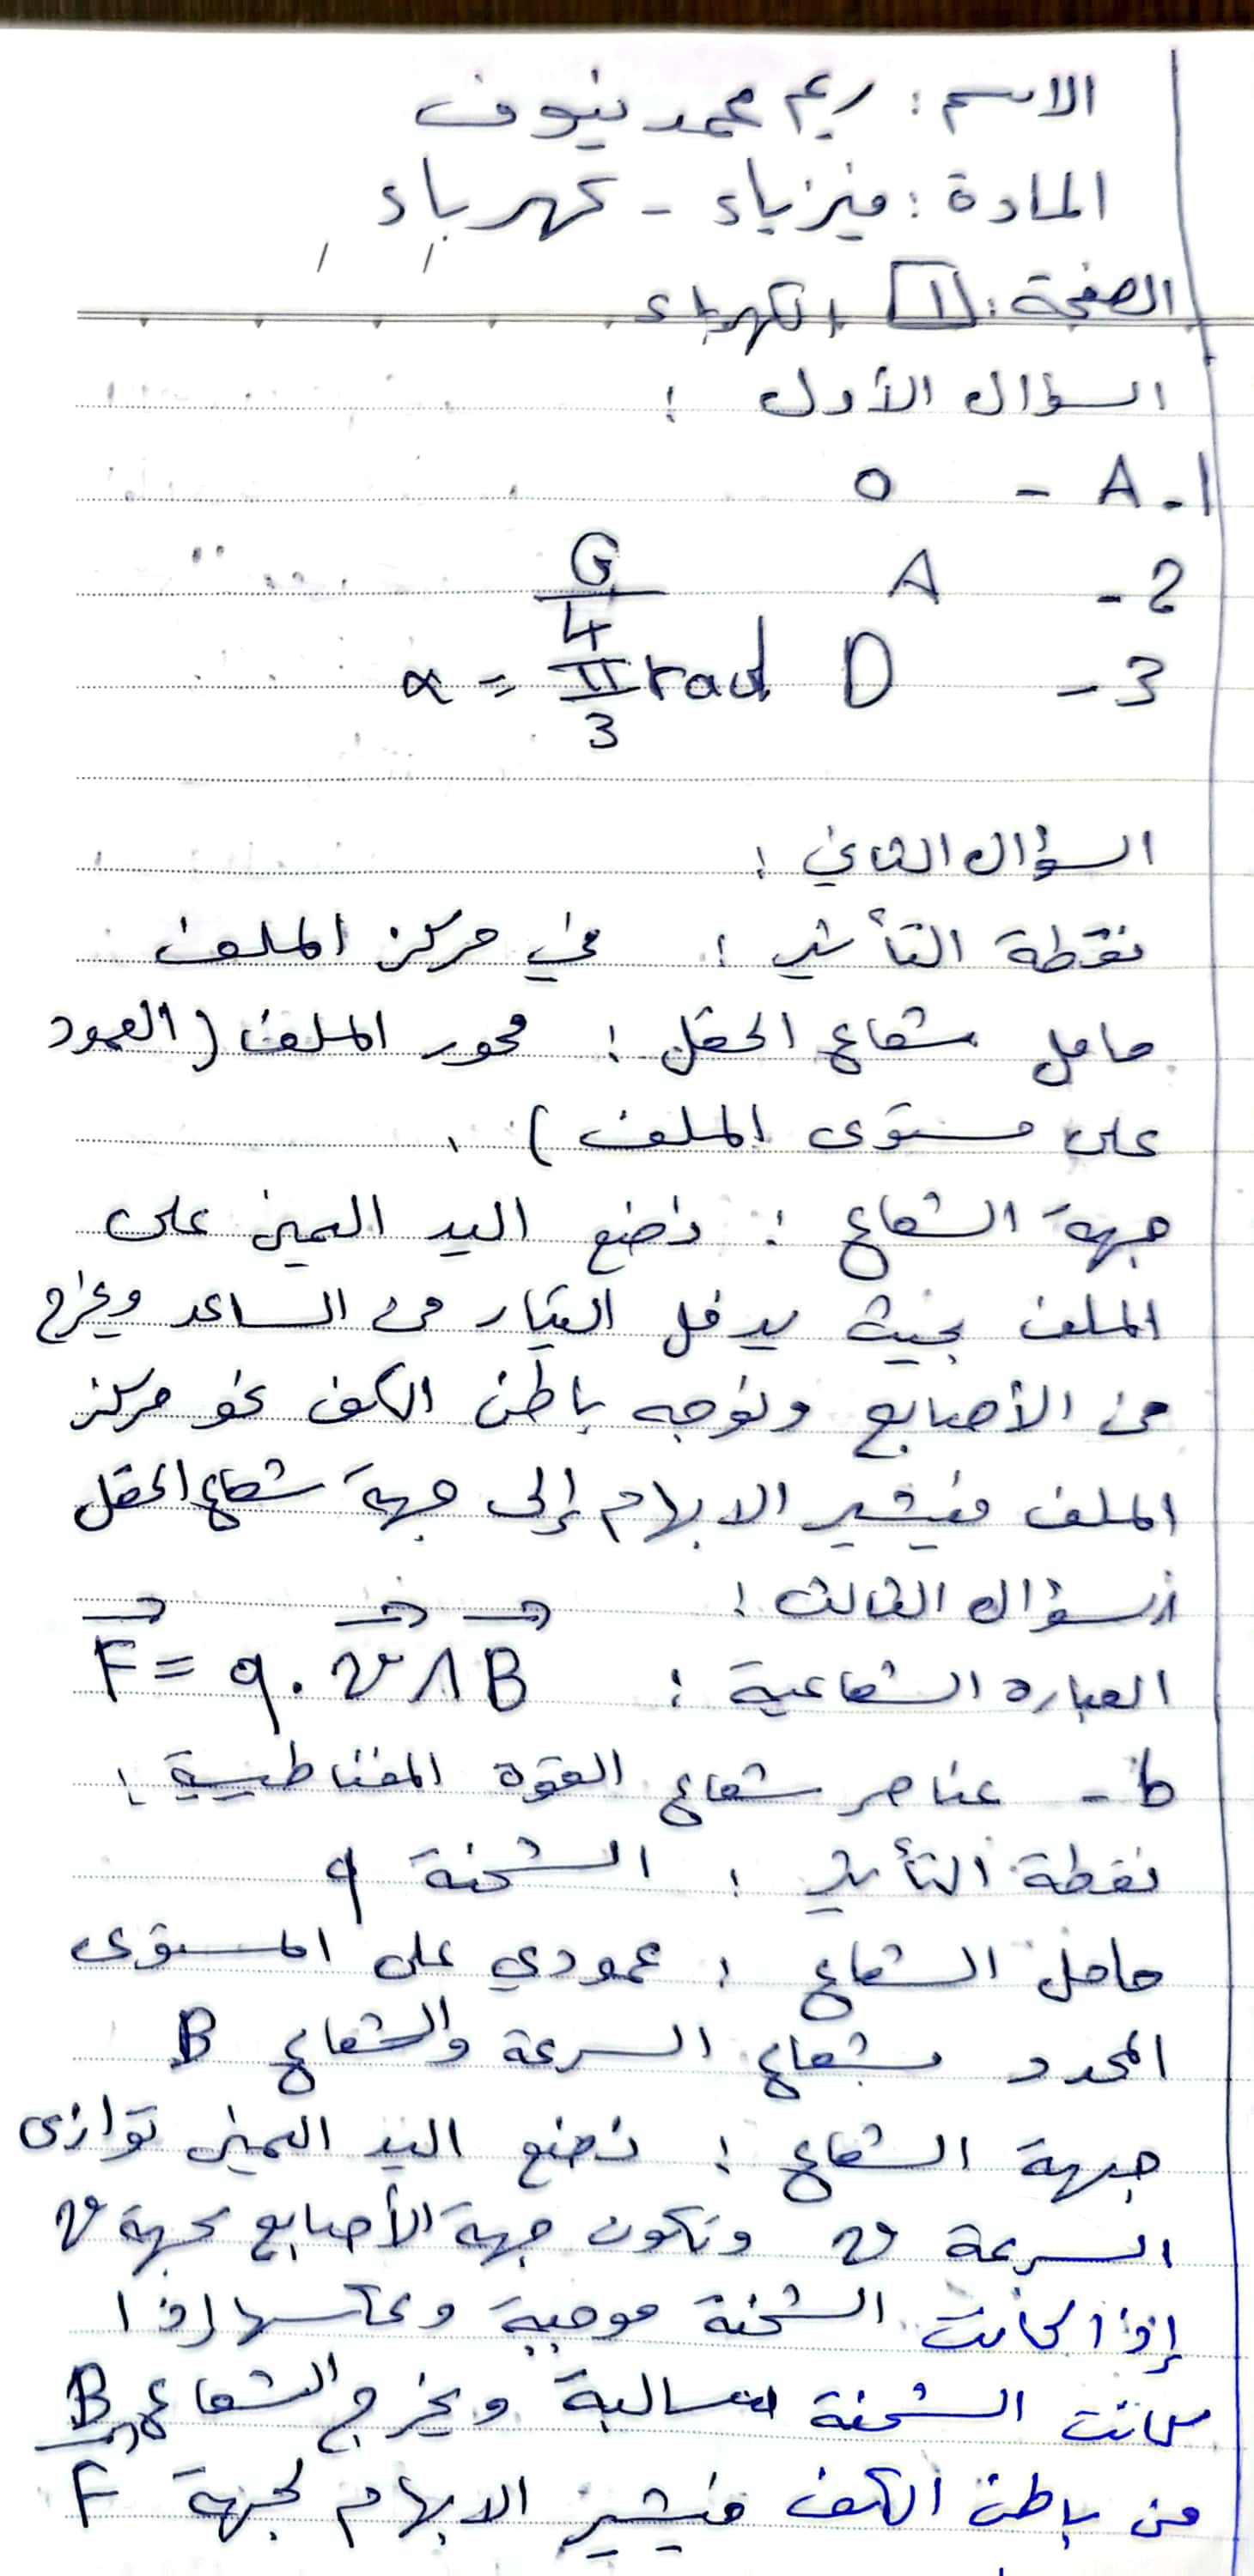 الاسم : ريم محمد نيوف
المادة : فيزياء - كهرباء
الصفحة : 1 الكهرباء
السؤال الأول :
1- A - 0
2- A G/4
3- D α = π/3 rad
السؤال الثاني :
نقطة التأثير : في مركز الملف
حامل شعاع الحقل : محور الملف (العمود
على مستوى الملف) .
جهة الشعاع : نضع اليد اليمنى على
الملف بحيث يدخل التيار من الساعد ويخرج
من الأصابع ونوجه باطن الكف نحو مركز
الملف فيشير الابهام إلى جهة شعاع الحقل
السؤال الثالث :
العبارة الشعاعية : F⃗ = q . v⃗ Λ B⃗
b - عناصر شعاع القوة المغناطيسية :
نقطة التأثير : الشحنة q
حامل الشعاع : عمودي على المستوى
المحدد بشعاع السرعة والشعاع B
جهة الشعاع : نضع اليد اليمنى توازي
السرعة v وتكون جهة الأصابع بجهة v
إذا كانت الشحنة موجبة وعكسها إذا
كانت الشحنة سالبة ويخرج الشعاع B
من باطن الكف فيشير الابهام لجهة F⃗